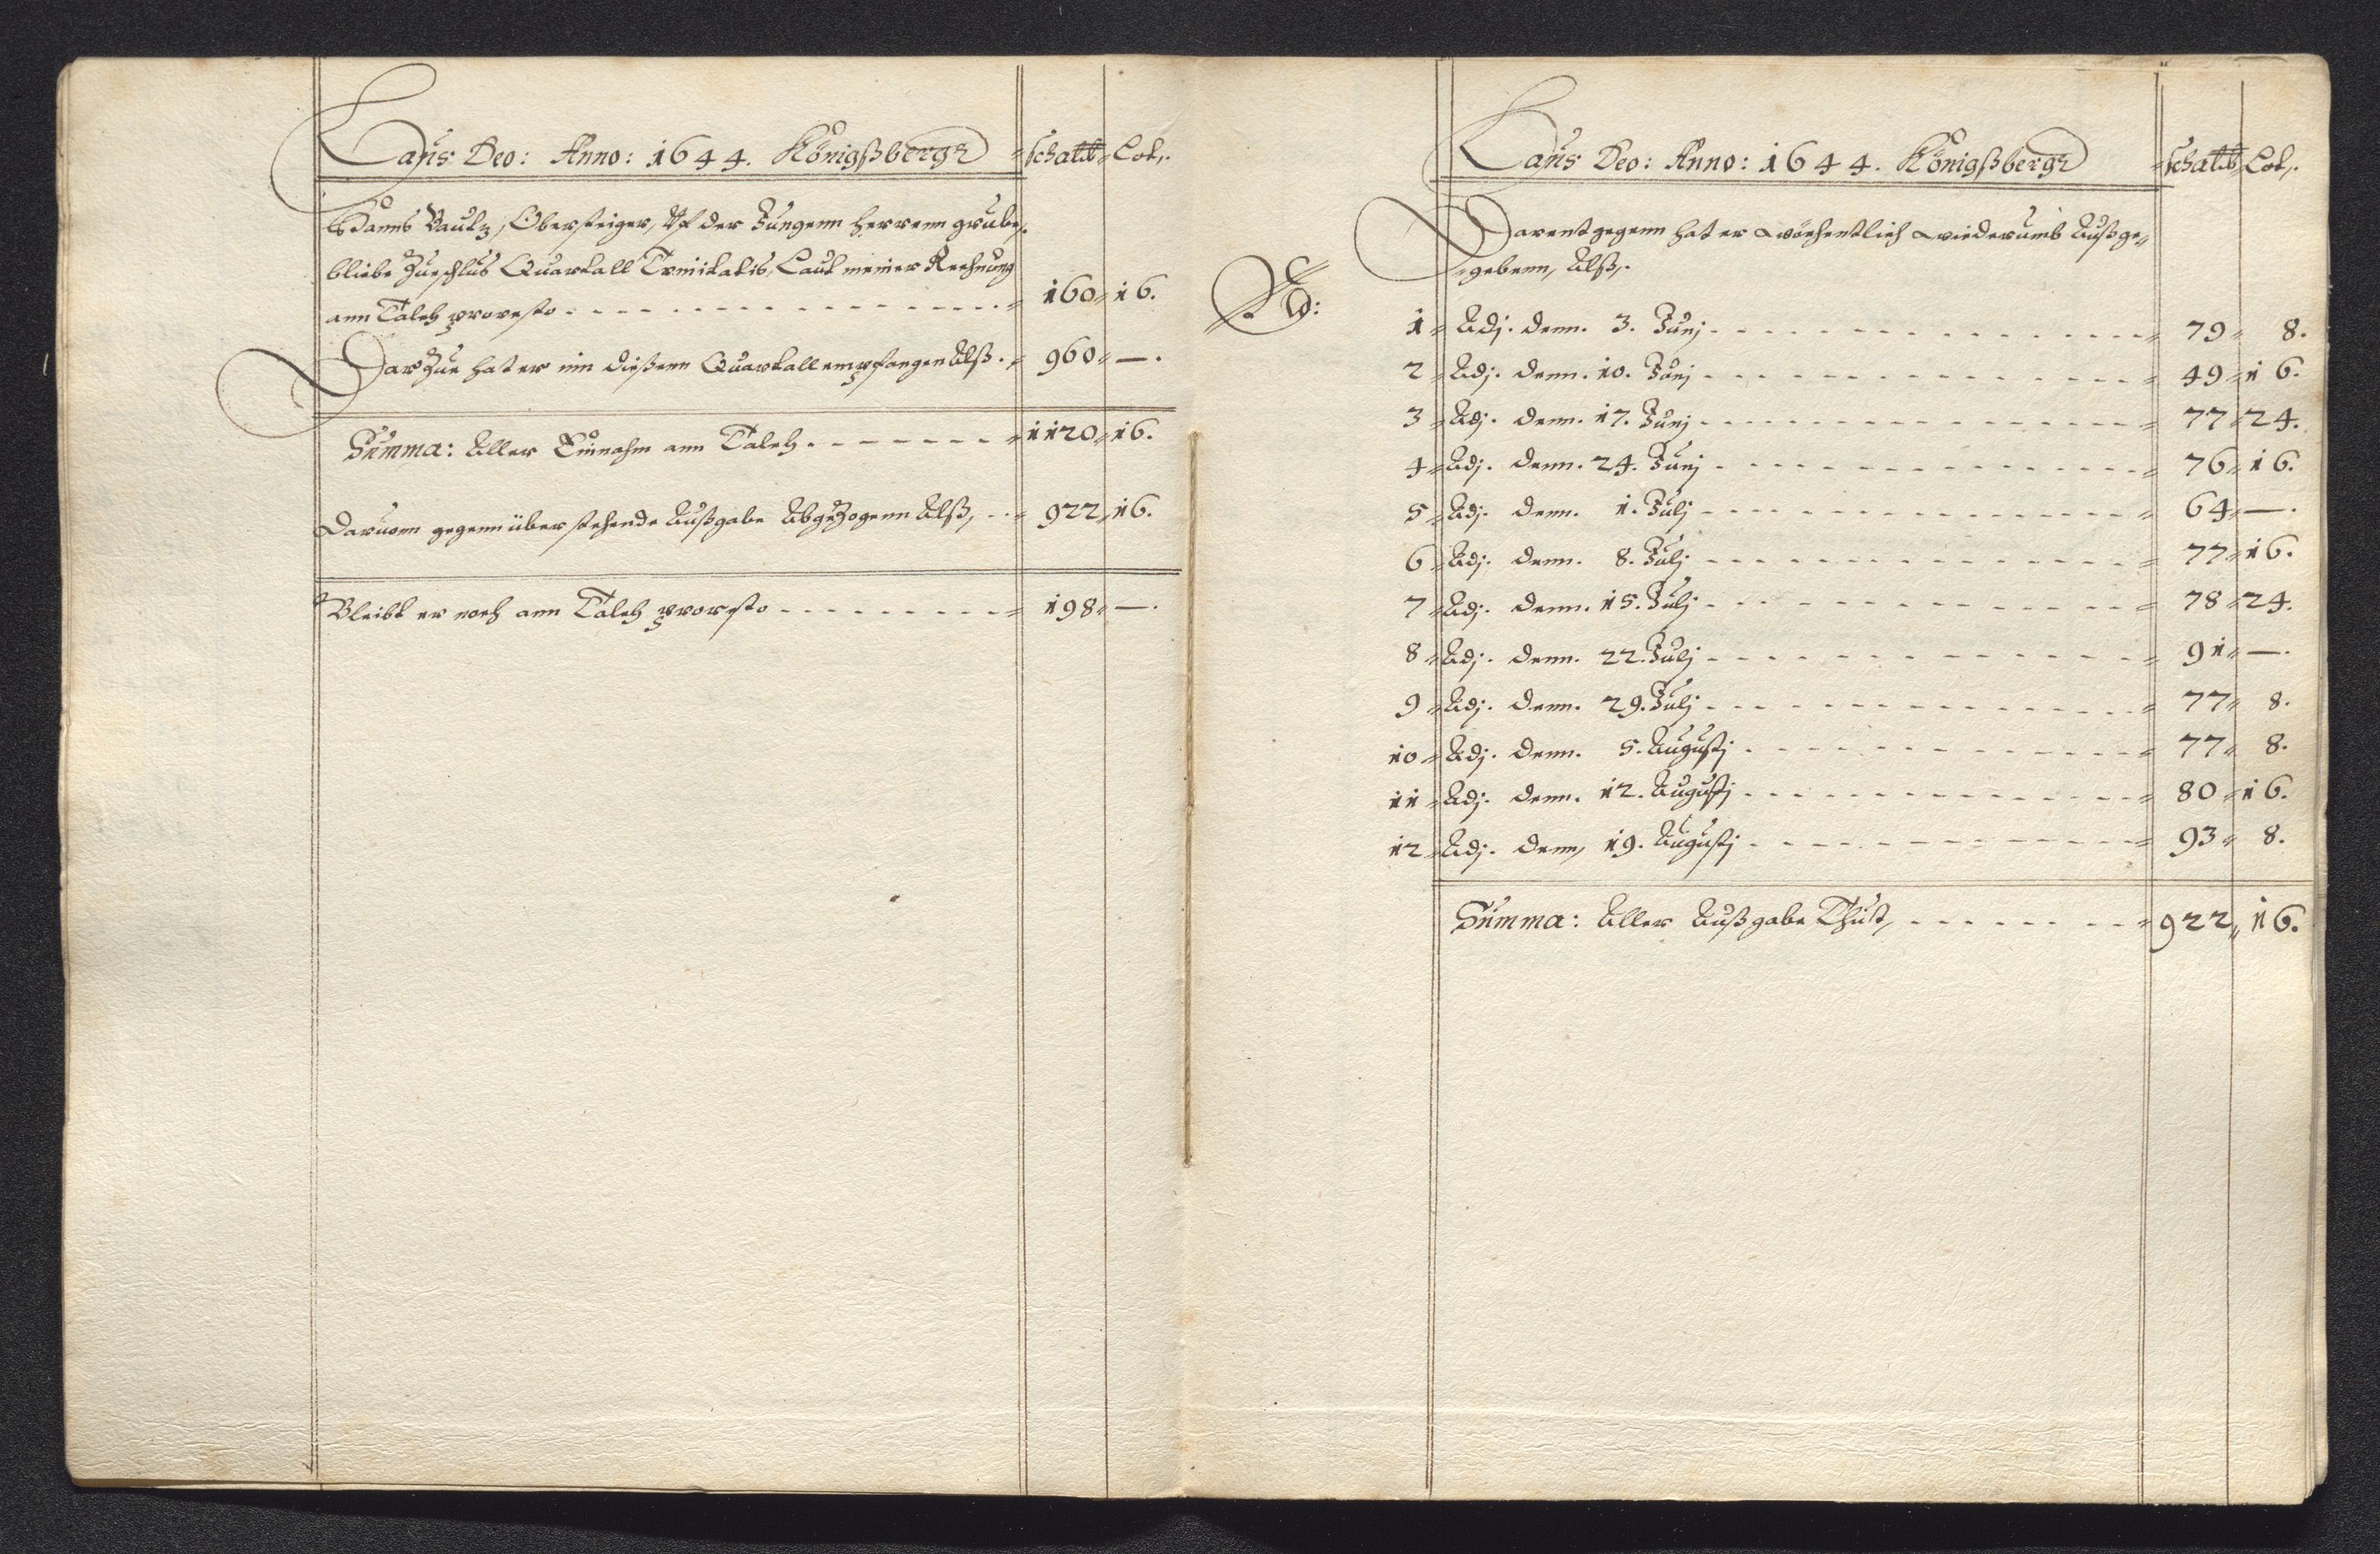 Laus Deo: Anno: 1644. Königßbergk schal℔ Lot.
Hanns Bautz, Obersteiger, Uf der Jungenn herrenn grube,
bliebe Zueschlus Quartall Trinitatis, Laut meiner Rechnung
ann Talch pro resto 160 16.
Dar Zue hat er inn dießenn Quartall empfangen Alß. 960 —.
Summa: Aller Einnahm ann Talch 1120 16.
Daruonn gegenn über stehende Außgabe Abgezogenn Alß, 922 16.
Bleibt er noch ann Talch pro resto 198 —.
Laus Deo: Anno: 1644. Königßbergk schal℔ Lot.
Darentgegenn hat er wöchentlich wiederumb Außge=
=gebenn, Alß,
No:
1 Adj. denn. 3. Junj 79 8.
2 Adj. denn. 10. Junj 49 16.
3 Adj. denn. 17. Junj 77 24.
4 Adj. denn. 24. Junj 76 16.
5 Adj. denn. 1. Julj 64 —.
6 Adj. denn. 8. Julj 77 16.
7 Adj. denn. 15. Julj 78 24.
8 Adj. denn. 22. Julj 91 —.
9 Adj. denn. 29. Julj 77 8.
10 Adj. denn. 5. Augustj 77 8.
11 Adj. denn. 12. Augustj 80 16.
12 Adj. denn, 19. Augustj 93 8.
Summa: Aller Außgabe Thut, 922 16.